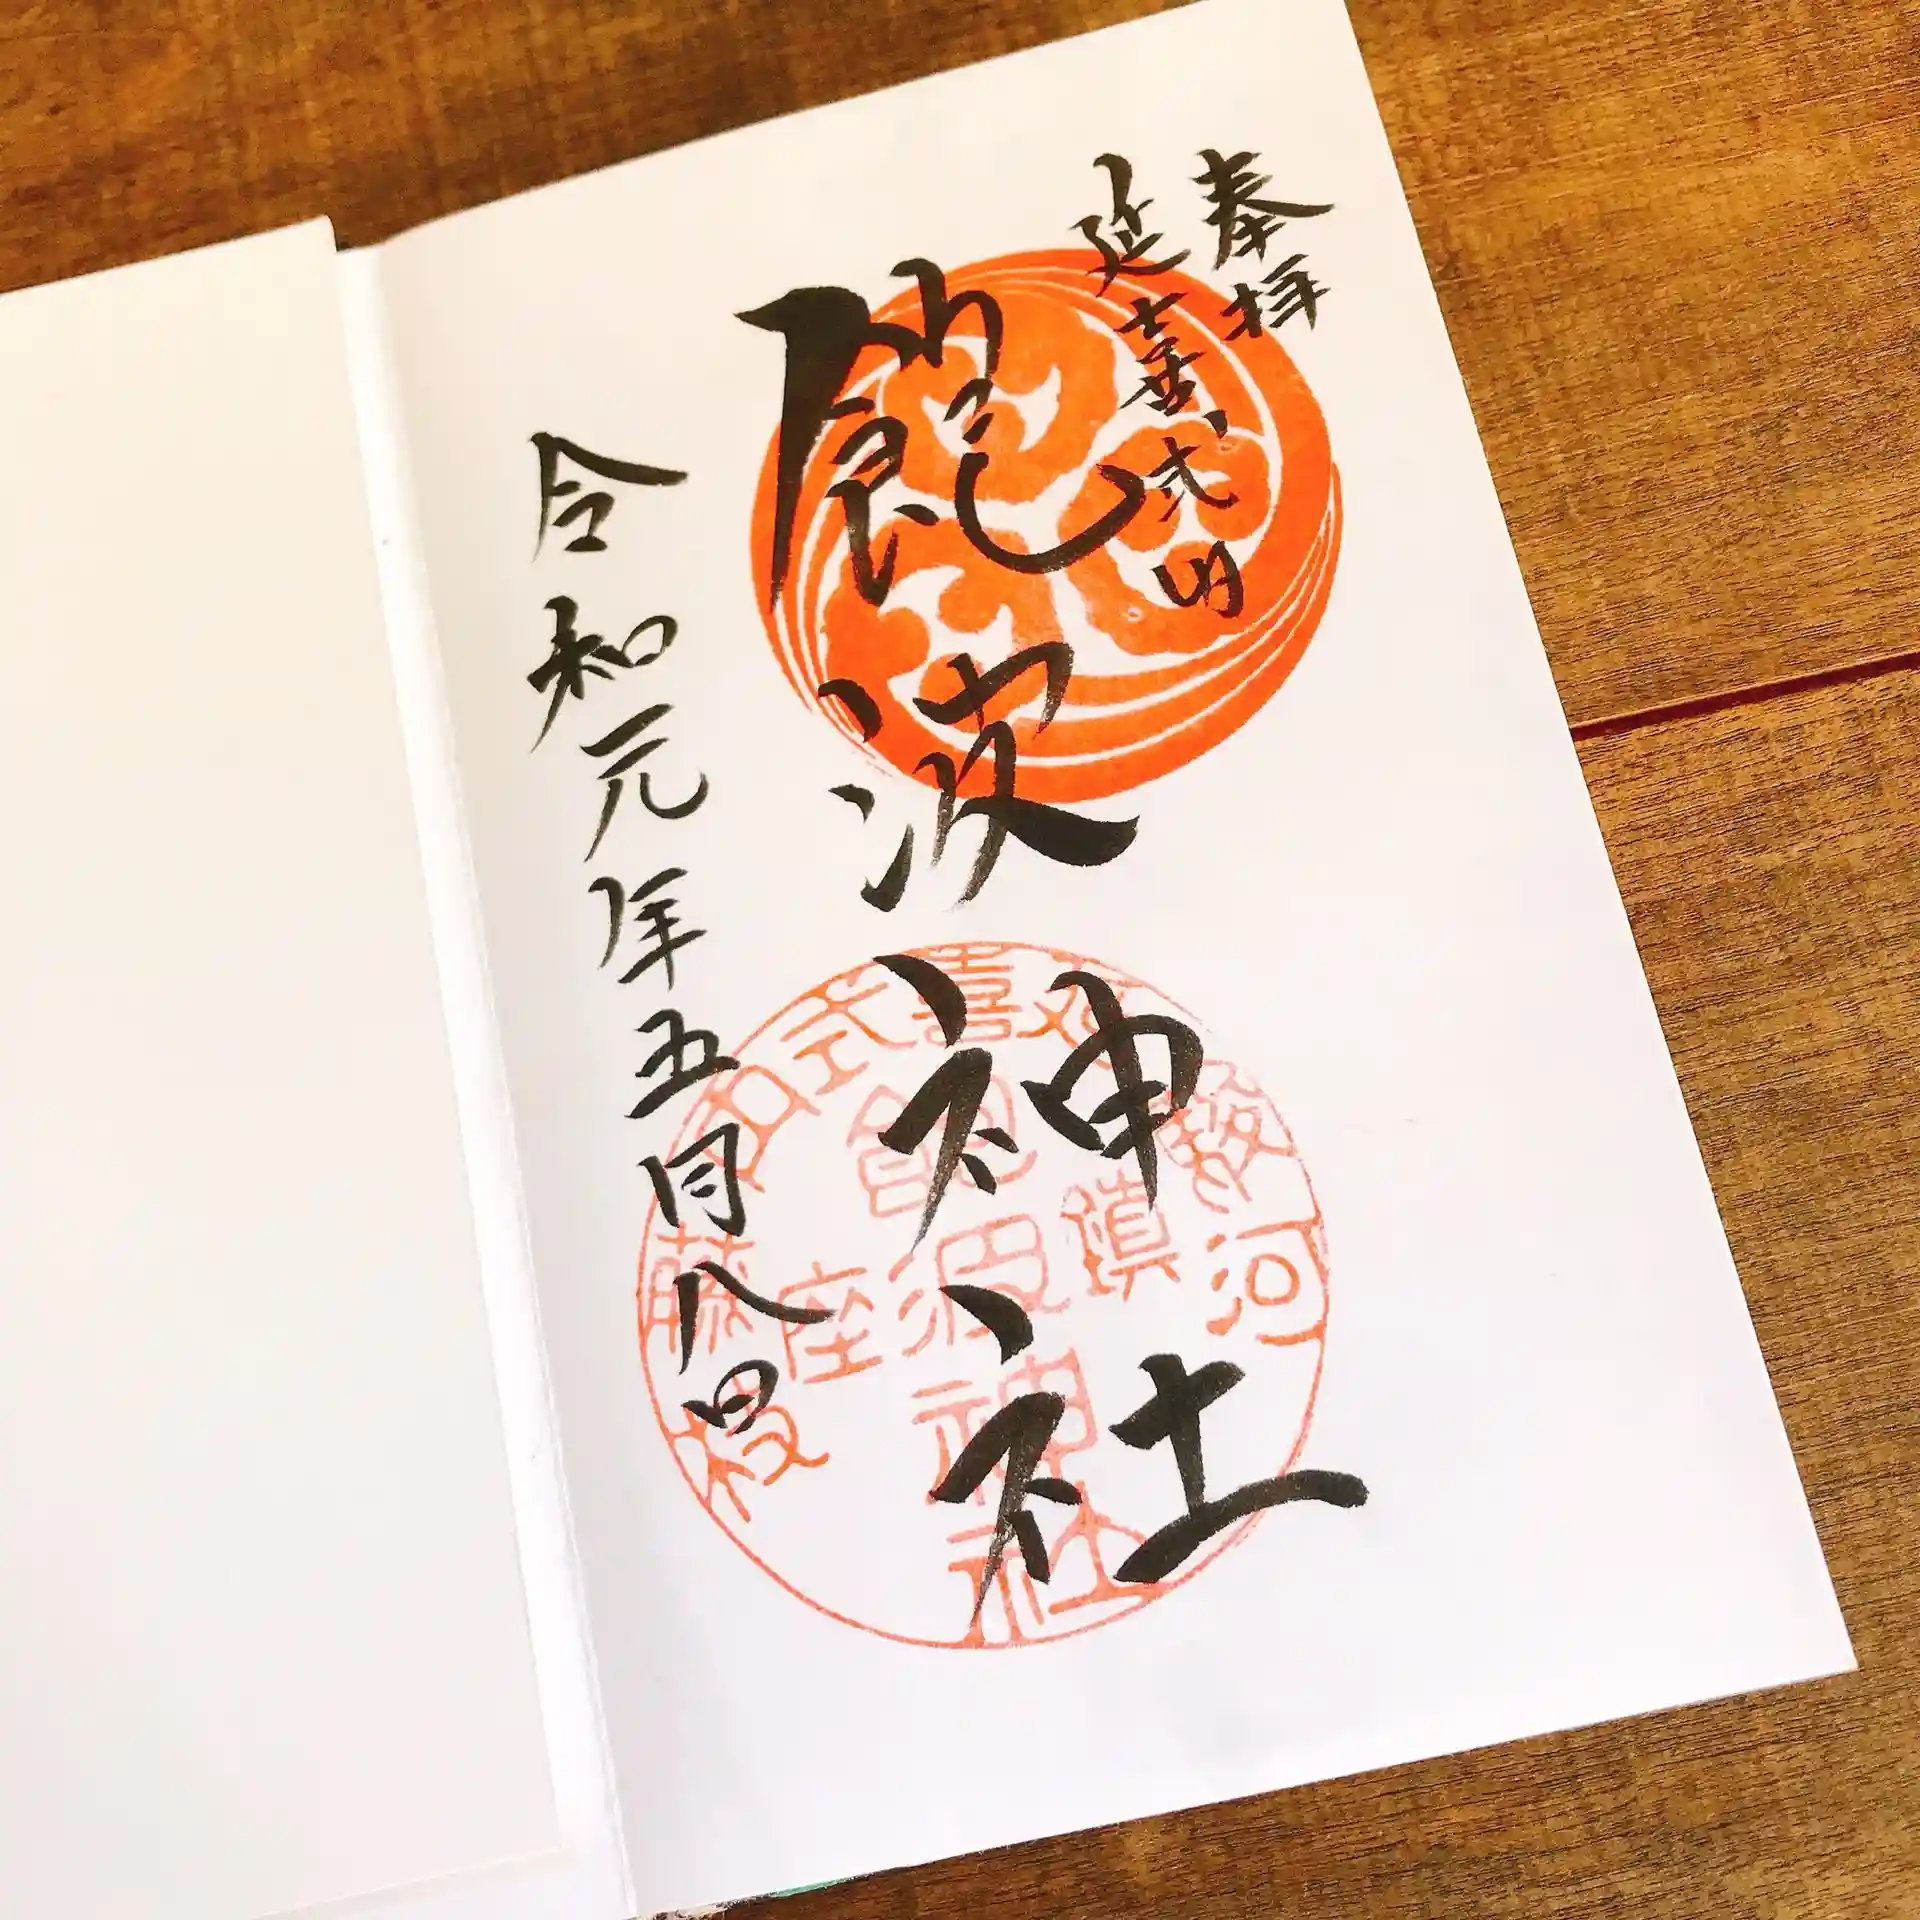 奉拝
延喜式内
飽波神社
令和元年五月八日
駿河
延喜式内
藤枝
鎮座
飽波神社